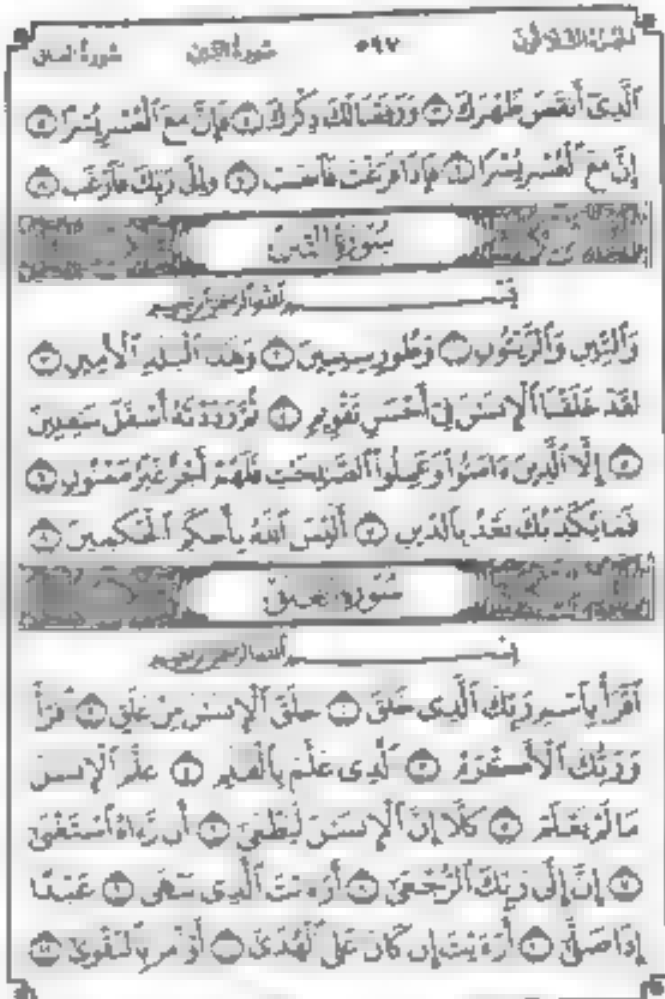 الجزء الثلاثون ٥٩٧ سورة التين سورة العلق
ٱلَّذِىٓ أَنقَضَ ظَهْرَكَ ٣ وَرَفَعْنَا لَكَ ذِكْرَكَ ٤ فَإِنَّ مَعَ ٱلْعُسْرِ يُسْرًا ٥
إِنَّ مَعَ ٱلْعُسْرِ يُسْرًا ٦ فَإِذَا فَرَغْتَ فَٱنصَبْ ٧ وَإِلَىٰ رَبِّكَ فَٱرْغَب ٨
سُورَةُ التِّينِ
بِسْمِ ٱللَّهِ ٱلرَّحْمَٰنِ ٱلرَّحِيمِ
وَٱلتِّينِ وَٱلزَّيْتُونِ ١ وَطُورِ سِينِينَ ٢ وَهَٰذَا ٱلْبَلَدِ ٱلْأَمِينِ ٣
لَقَدْ خَلَقْنَا ٱلْإِنسَٰنَ فِىٓ أَحْسَنِ تَقْوِيمٍ ٤ ثُمَّ رَدَدْنَٰهُ أَسْفَلَ سَٰفِلِينَ
٥ إِلَّا ٱلَّذِينَ ءَامَنُوا۟ وَعَمِلُوا۟ ٱلصَّٰلِحَٰتِ فَلَهُمْ أَجْرٌ غَيْرُ مَمْنُونٍ ٦
فَمَا يُكَذِّبُكَ بَعْدُ بِٱلدِّينِ ٧ أَلَيْسَ ٱللَّهُ بِأَحْكَمِ ٱلْحَٰكِمِينَ ٨
سُورَةُ العَلَقِ
بِسْمِ ٱللَّهِ ٱلرَّحْمَٰنِ ٱلرَّحِيمِ
ٱقْرَأْ بِٱسْمِ رَبِّكَ ٱلَّذِى خَلَقَ ١ خَلَقَ ٱلْإِنسَٰنَ مِنْ عَلَقٍ ٢ ٱقْرَأْ
وَرَبُّكَ ٱلْأَكْرَمُ ٣ ٱلَّذِى عَلَّمَ بِٱلْقَلَمِ ٤ عَلَّمَ ٱلْإِنسَٰنَ
مَا لَمْ يَعْلَمْ ٥ كَلَّآ إِنَّ ٱلْإِنسَٰنَ لَيَطْغَىٰٓ ٦ أَن رَّءَاهُ ٱسْتَغْنَىٰٓ
٧ إِنَّ إِلَىٰ رَبِّكَ ٱلرُّجْعَىٰٓ ٨ أَرَءَيْتَ ٱلَّذِى يَنْهَىٰ ٩ عَبْدًا
إِذَا صَلَّىٰٓ ١٠ أَرَءَيْتَ إِن كَانَ عَلَى ٱلْهُدَىٰٓ ١١ أَوْ أَمَرَ بِٱلتَّقْوَىٰٓ ١٢